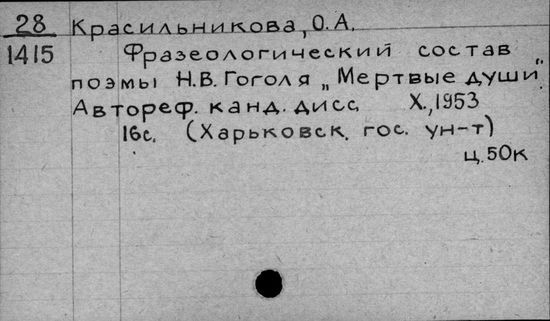 28 Красильникова, О. А.
1415 Фразеологический состав
поэмы Н.В. Гоголя „Мертвые души"
Автореф. канд. дисс. Х., 1953
16с. (Харьковск. гос. ун-т)
ц. 50к